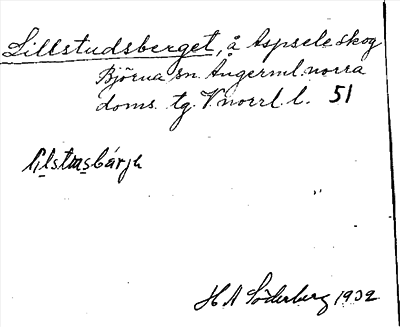 Lillstudsberget, å Aspsele skog
Björna sn. Ångerml. norra
doms. tg. V norrl. l. 51
H A Söderberg 1932